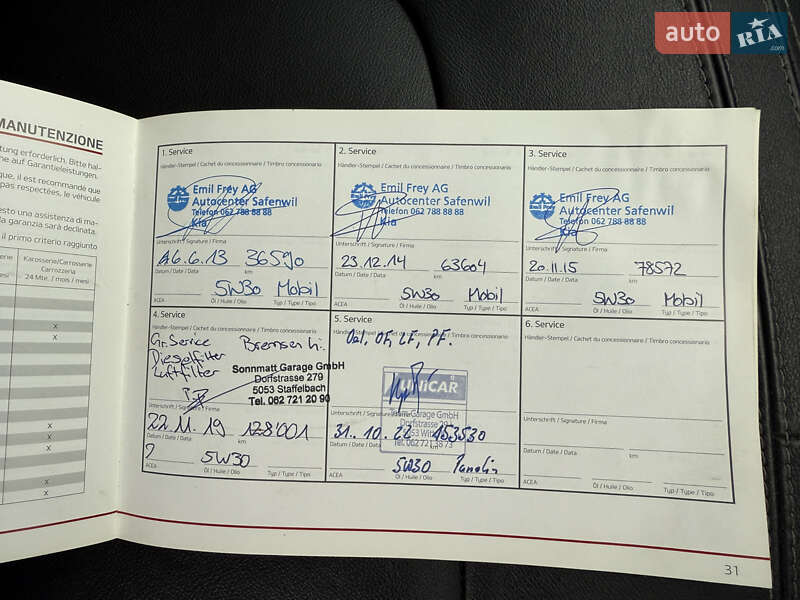 auto RIA .com
MANUTENZIONE
tung erforderlich. Bitte hal-
he auf Garantieleistungen.
que, il est recommandé que
pas respectées, le véhicule
esto una assistenza di ma-
la garanzia sarà declinata.
il primo criterio raggiunto
Karosserie/Carrosserie
Carrozzeria
24 Mte. / mois / mesi
x
x
x
x
x
x
x
1. Service
Händler-Stempel / Cachet du concessionnaire / Timbro concessionario
Emil Frey AG
Autocenter Safenwil
Telefon 062 788 88 88
Kia
Unterschrift / Signature / Firma
16.6.13 36590
Datum / Date / Data km
5W30 Mobil
ACEA Öl / Huile / Olio Typ / Type / Tipo
2. Service
Händler-Stempel / Cachet du concessionnaire / Timbro concessionario
Emil Frey AG
Autocenter Safenwil
Telefon 062 788 88 88
Kia
Unterschrift / Signature / Firma
23.12.14 63604
Datum / Date / Data km
5W30 Mobil
ACEA Öl / Huile / Olio Typ / Type / Tipo
3. Service
Händler-Stempel / Cachet du concessionnaire / Timbro concessionario
Emil Frey AG
Autocenter Safenwil
Telefon 062 788 88 88
Kia
Unterschrift / Signature / Firma
20.11.15 78572
Datum / Date / Data km
5W30 Mobil
ACEA Öl / Huile / Olio Typ / Type / Tipo
4. Service
Händler-Stempel / Cachet du concessionnaire / Timbro concessionario
Gr. Service Bremsen hi.
Dieselfilter
Luftfilter
Sonnmatt Garage GmbH
Dorfstrasse 279
5053 Staffelbach
Tel. 062 721 20 90
Unterschrift / Signature / Firma
22.11.19 128001
Datum / Date / Data km
? 5W30
ACEA Öl / Huile / Olio Typ / Type / Tipo
5. Service
Händler-Stempel / Cachet du concessionnaire / Timbro concessionario
Oel, OF, LF, PF.
UNICAR
Garage GmbH
Dorfstrasse
Unterschrift / Signature / Firma
31.10.22 153530
Datum / Date / Data km
5W30 Panolin
ACEA Öl / Huile / Olio Typ / Type / Tipo
6. Service
Händler-Stempel / Cachet du concessionnaire / Timbro concessionario
Unterschrift / Signature / Firma
Datum / Date / Data km
ACEA Öl / Huile / Olio Typ / Type / Tipo
31